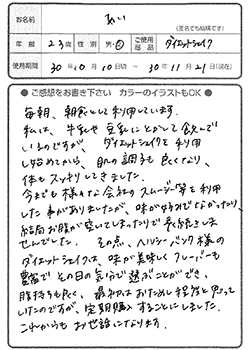 お名前 あい
(匿名でも結構です)
年齢 23歳 性別 男・女 ご使用商品 ダイエットシェイク
使用期間 30年10月10日頃 ~ 30年11月21日(現在)
● ご感想をお書き下さい カラーのイラストもOK ●
毎朝、朝食として利用しています。
私は、牛乳や豆乳にとかして飲んで
いるのですが、ダイエットシェイクを利用
し始めてから、肌の調子も良くなり、
体もスッキリしてきました。
今までも様々な会社のスムージー等を利用
した事がありましたが、味が好みでなかったり、
結局お腹が空いてしまったりで長続きしま
せんでした。その点、ヘルシーバンク様の
ダイエットシェイクは、味が美味しくフレーバーも
豊富で その日の気分で選ぶことができ、
腹持ちも良く、最初はおためし程度と思って
いたのですが、定期購入することにしました。
これからもお世話になります。